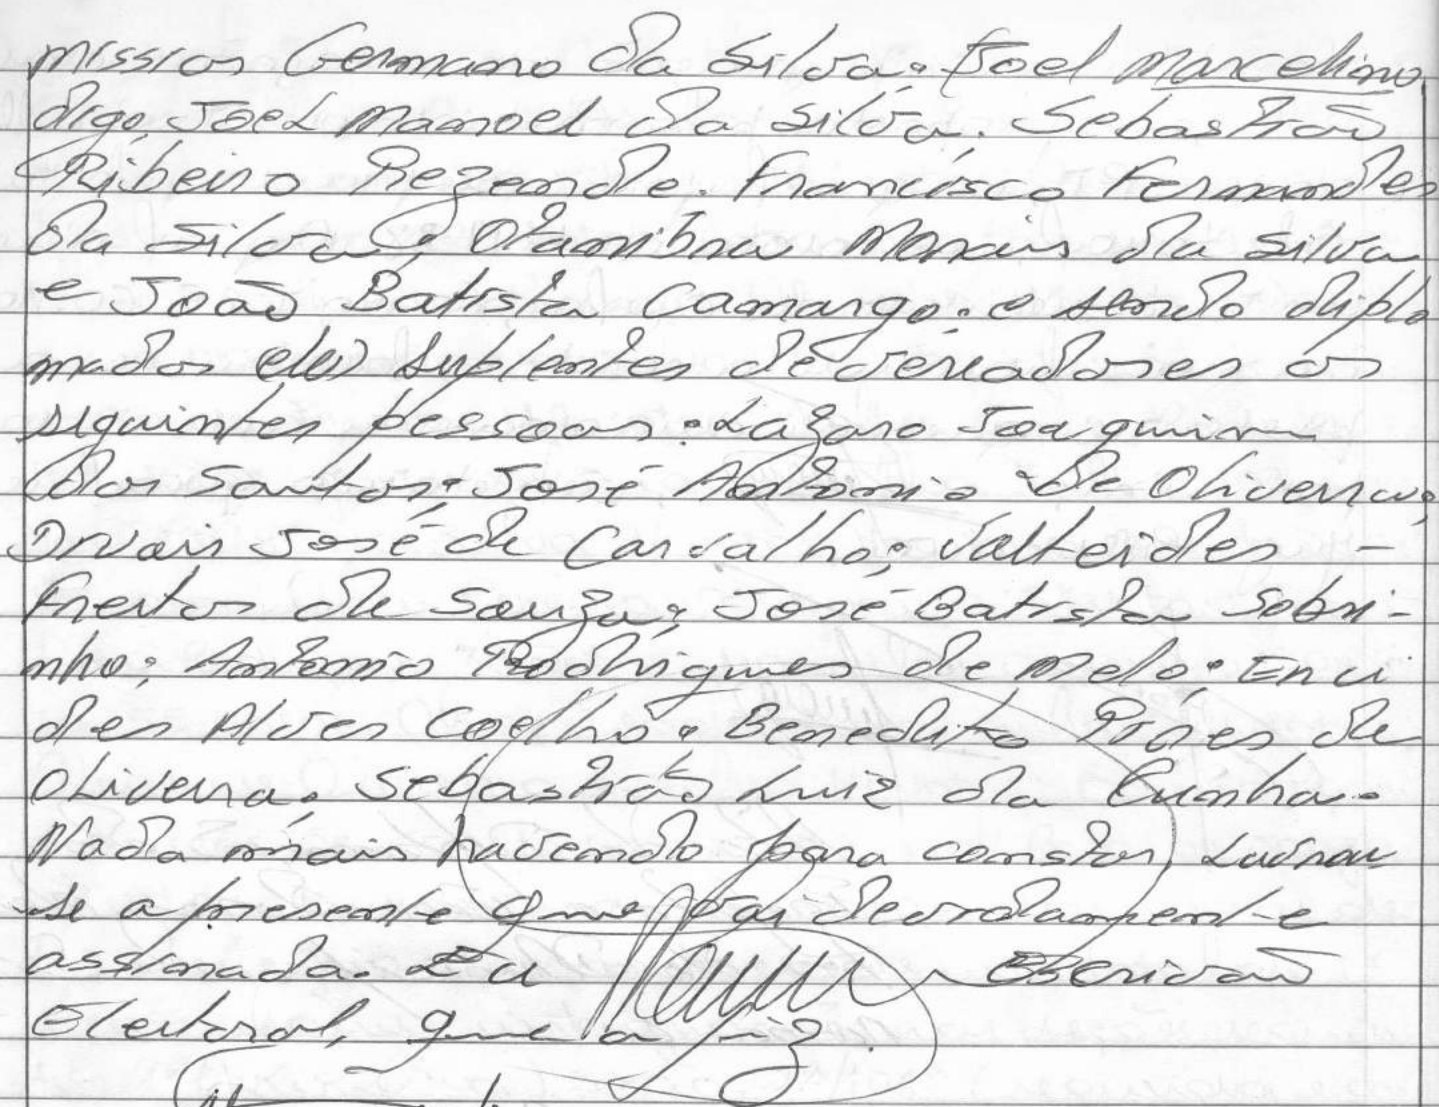 missias Germano da Silva. Joel Marcelino,
digo, Joel Manoel da Silva. Sebastião
Ribeiro Rezende. Francisco Fernandes
da Silva; Morais da Silva
e João Batista Camargo. e sendo diplo
mados suplentes de vereadores as
siguintes pessoas: Lazaro Joaquim
dos Santos; José Antonio de Oliveira;
José de Carvalho; Valteides -
Freitas de Souza; José Batista Sobri-
nho; Antonio Rodrigues de Melo; Euci
des Alves Coelho; Benedito Pires de
Oliveira. Sebastião Luiz da Cunha.
Nada mais havendo para constar, Lavrou
se a presente que vai devidamente
assinada. Eu Escrivão
Eleitoral, que a fiz.